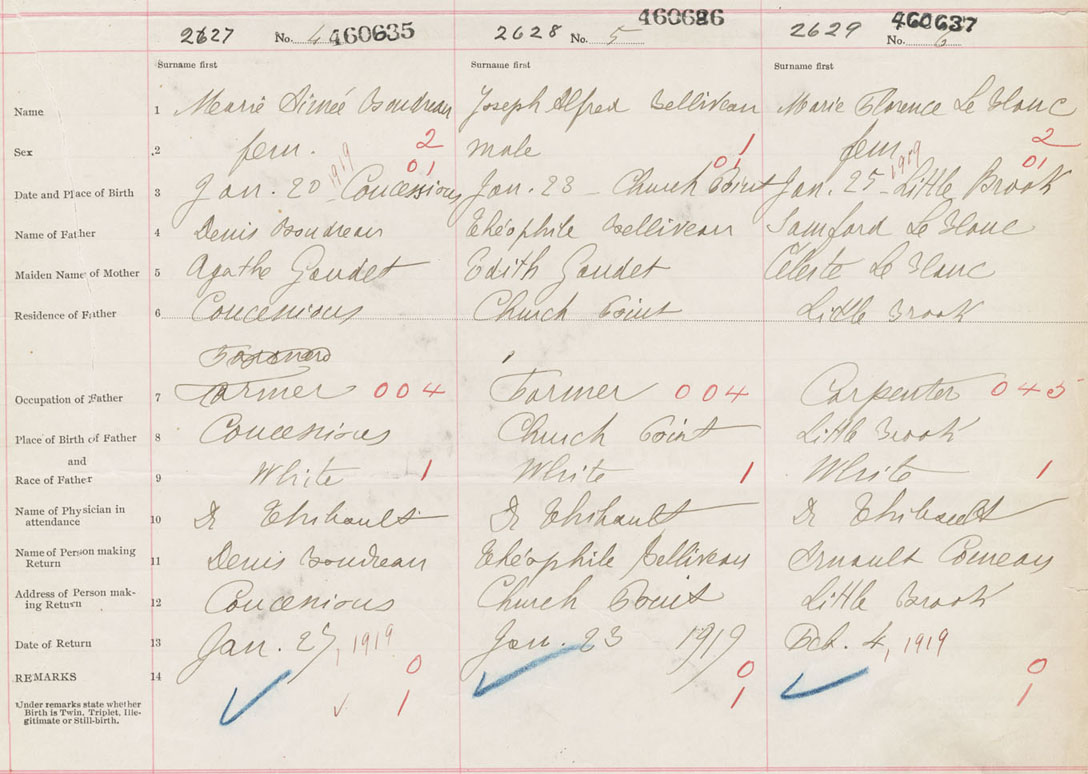 2627 No. 4 460635 2628 No. 5 460636 2629 No. 6 460637
Surname first Surname first Surname first
Name 1 Marie Aimée Boudreau Joseph Alfred Belliveau Marie Florence Le Blanc
Sex 2 fem. 2 male 1 fem. 2
01 01 01
Date and Place of Birth 3 Jan. 20 1919 - Concessions Jan. 23 - Church Point Jan. 25 1919 - Little Brook
Name of Father 4 Denis Boudreau Théophile Belliveau Samford Le Blanc
Maiden Name of Mother 5 Agathe Gaudet Edith Gaudet Céleste Le Blanc
Residence of Father 6 Concessions Church Point Little Brook
Occupation of Father 7 Farmer 004 Farmer 004 Carpenter 045
Place of Birth of Father 8 Concessions Church Point Little Brook
and
Race of Father 9 White 1 White 1 White 1
Name of Physician in attendance 10 Dr Thibault Dr Thibault Dr Thibault
Name of Person making Return 11 Denis Boudreau Théophile Belliveau Arnault Comeau
Address of Person making Return 12 Concessions Church Point Little Brook
Date of Return 13 Jan. 27, 1919 Jan. 23 1919 Oct. 4, 1919
REMARKS 14 0 0 0
Under remarks state whether Birth is Twin, Triplet, Illegitimate or Still-birth. 1 1 1